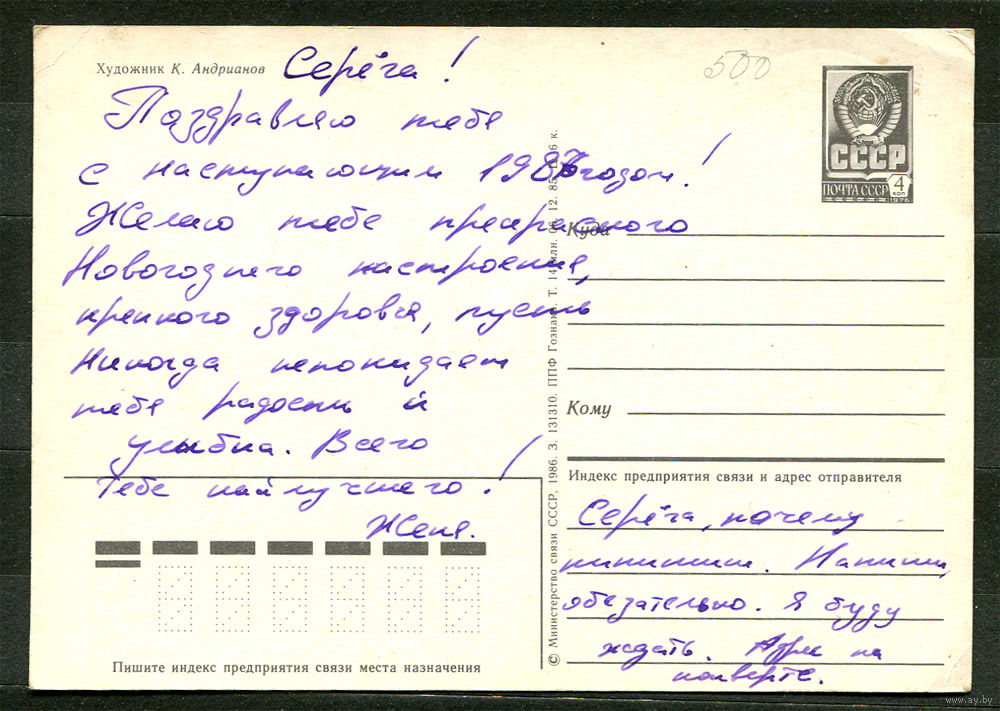 Художник К. Андрианов
Серёга!
500
Поздравляю тебя
с наступающим 1987 годом!
Желаю тебе прекрасного
Новогоднего настроения,
крепкого здоровья, пусть
Никогда непокидает
тебя радость и
улыбка. Всего
Тебе наилучшего!
Женя.
Пишите индекс предприятия связи места назначения
© Министерство связи СССР, 1986. З. 131310. ППФ Гознака. Т. 14 млн. 06. 12. 85. Ц. 6 к.
СССР
ПОЧТА СССР 4 КОП
1976
Куда
Кому
Индекс предприятия связи и адрес отправителя
Серёга, почему
непишиш. Напиши,
обезательно. Я буду
ждать. Адрес на
конверте.
www.ay.by